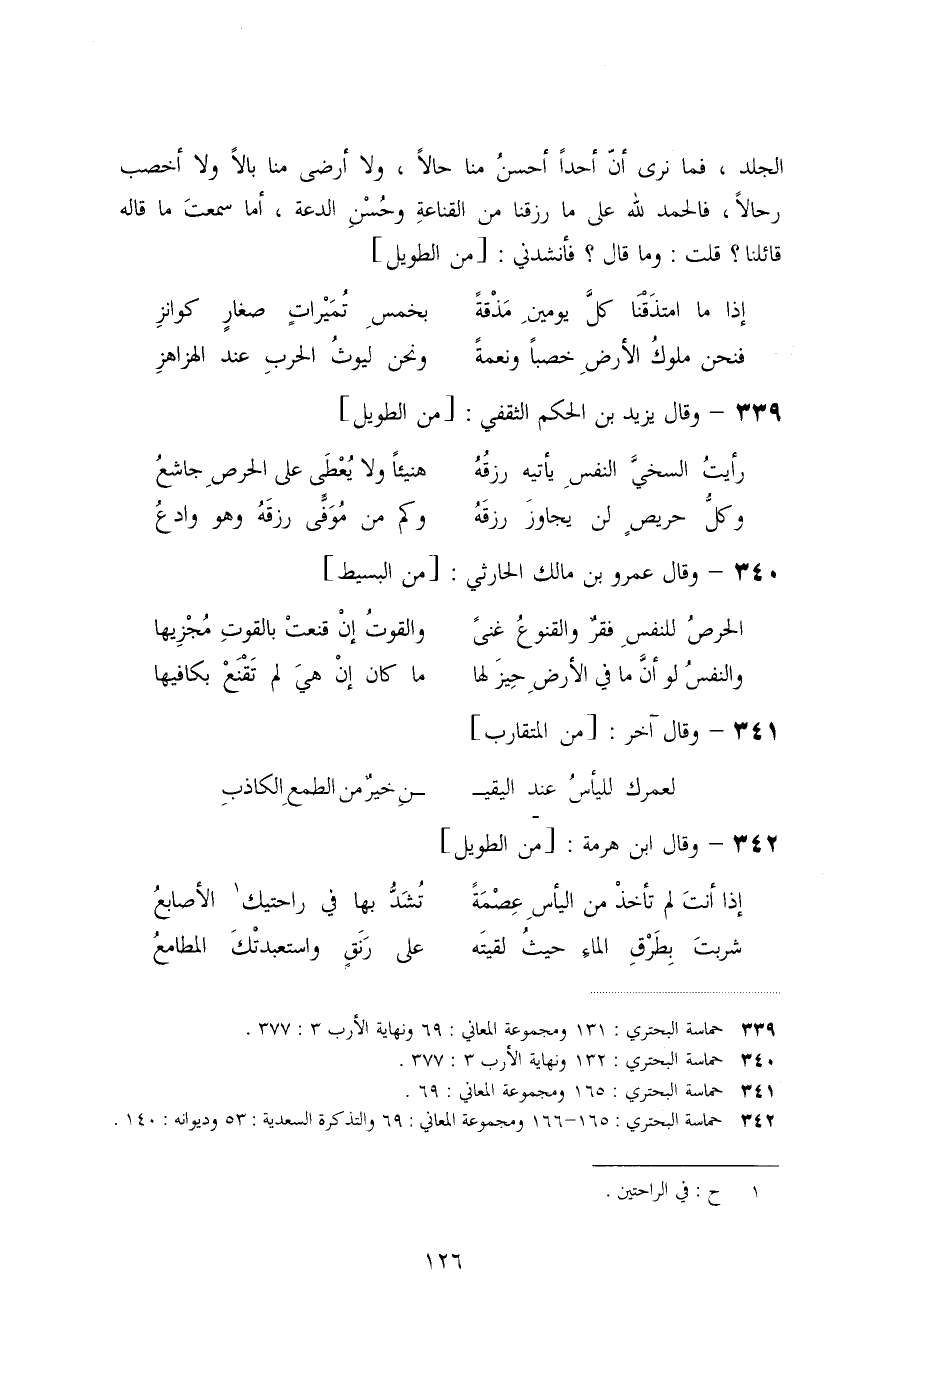 الجلد ، فما نرى أنّ أحداً أحسنُ منا حالاً ، ولا أرضى منا بالاً ولا أخصب
رحالاً ، فالحمد لله على ما رزقنا من القناعةِ وحُسْنِ الدعة ، أما سمعتَ ما قاله
قائلنا ؟ قلت : وما قال ؟ فأنشدني : [من الطويل]
إذا ما امتذَقْنَا كلَّ يومينِ مَذْقةً بخمسِ تُمَيْراتٍ صغارٍ كوانزِ
فنحن ملوكُ الأرضِ خصباً ونعمةً ونحن ليوثُ الحربِ عند الهزاهزِ
٣٣٩ – وقال يزيد بن الحكم الثقفي : [من الطويل]
رأيتُ السخيَّ النفسِ يأتيه رزقُهُ هنيئاً ولا يُعْطَى على الحرصِ جاشعُ
وكلُّ حريصٍ لن يجاوزَ رزقَهُ وكم من مُوَفًّى رزقَهُ وهو وادعُ
٣٤٠ – وقال عمرو بن مالك الحارثي : [من البسيط]
الحرصُ للنفسِ فقرٌ والقنوعُ غنىً والقوتُ إنْ قنعتْ بالقوتِ مُجْزِيها
والنفسُ لو أنَّ ما في الأرضِ حِيزَ لها ما كان إنْ هيَ لم تَقْنَعْ بكافيها
٣٤١ – وقال آخر : [من المتقارب]
لعمرك لليأسُ عند اليقيـ ـنِ خيرٌ من الطمعِ الكاذبِ
٣٤٢ – وقال ابن هرمة : [من الطويل]
إذا أنتَ لم تأخذْ من اليأسِ عِصْمَةً تُشَدُّ بها في راحتيك١ الأصابعُ
شربتَ بِطَرْقِ الماءِ حيثُ لقيتَه على رَنَقٍ واستعبدتْكَ المطامعُ
٣٣٩ حماسة البحتري : ١٣١ ومجموعة المعاني : ٦٩ ونهاية الأرب ٣ : ٣٧٧ .
٣٤٠ حماسة البحتري : ١٣٢ ونهاية الأرب ٣ : ٣٧٧ .
٣٤١ حماسة البحتري : ١٦٥ ومجموعة المعاني : ٦٩ .
٣٤٢ حماسة البحتري : ١٦٥–١٦٦ ومجموعة المعاني : ٦٩ والتذكرة السعدية : ٥٣ وديوانه : ١٤٠ .
١ ح : في الراحتين .
١٢٦